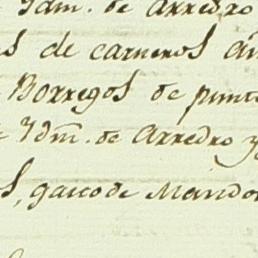 Ydm. de Arredro
de carneros
Borregos de punt
Ydm. de Arredro y
gaicode Mando